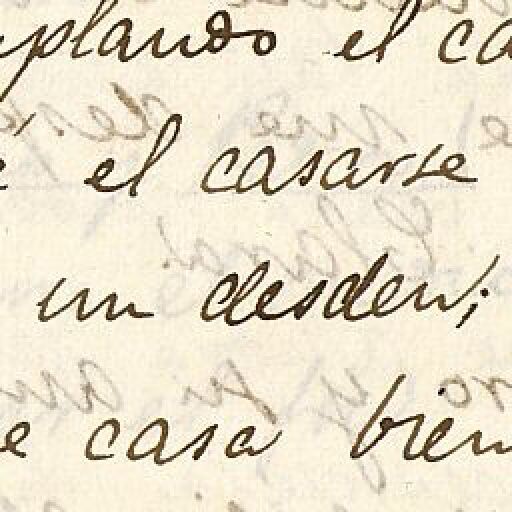 plando el ca
é el casarse
un desden;
e casa bien